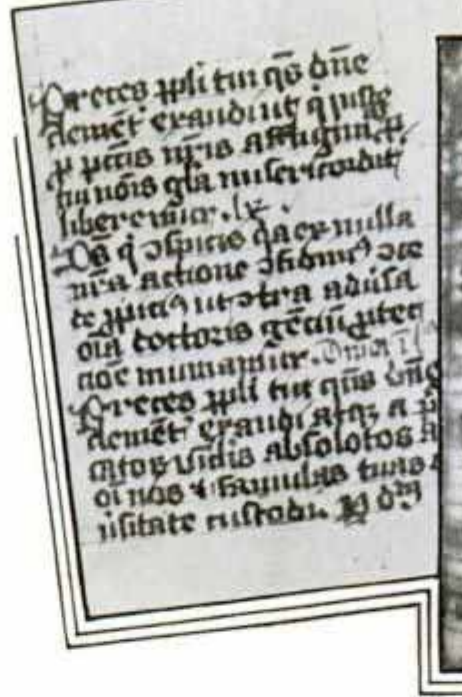 Preces ppli tui qs̄ dn̄e
clemēt' exaudi ut q̄ iuste
ꝑ pctis nr̄is affligimꝰ ꝓ
tui nōis gl̄a misericordit'
liberemur.
Ds̄ q̄ ꝯspicis qa ex nulla
nr̄a actione ꝯfidimꝰ ꝯce
de ꝓpiciꝰ ut ꝯtra adūsa
oīa doctoris gēciū ꝓtec
tioe muniamur. Dnica
Preces ppli tui qm̄s dn̄e
clemēt' exaudi atqꝫ a
catoꝝ absolutos
oi nos famulas tuas
ūsitate custodi.